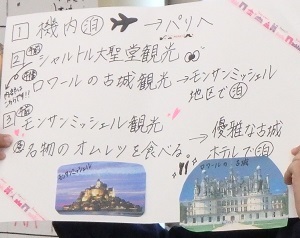 1 機内泊 → パリへ
2 シャルトル大聖堂観光
ロワールの古城観光 → モンサンミッシェル
地区で泊
3 モンサンミッシェル観光
名物のオムレツを食べる。→ 優雅な古城
ホテルで泊
モンサンミッシェル
ロワールの古城